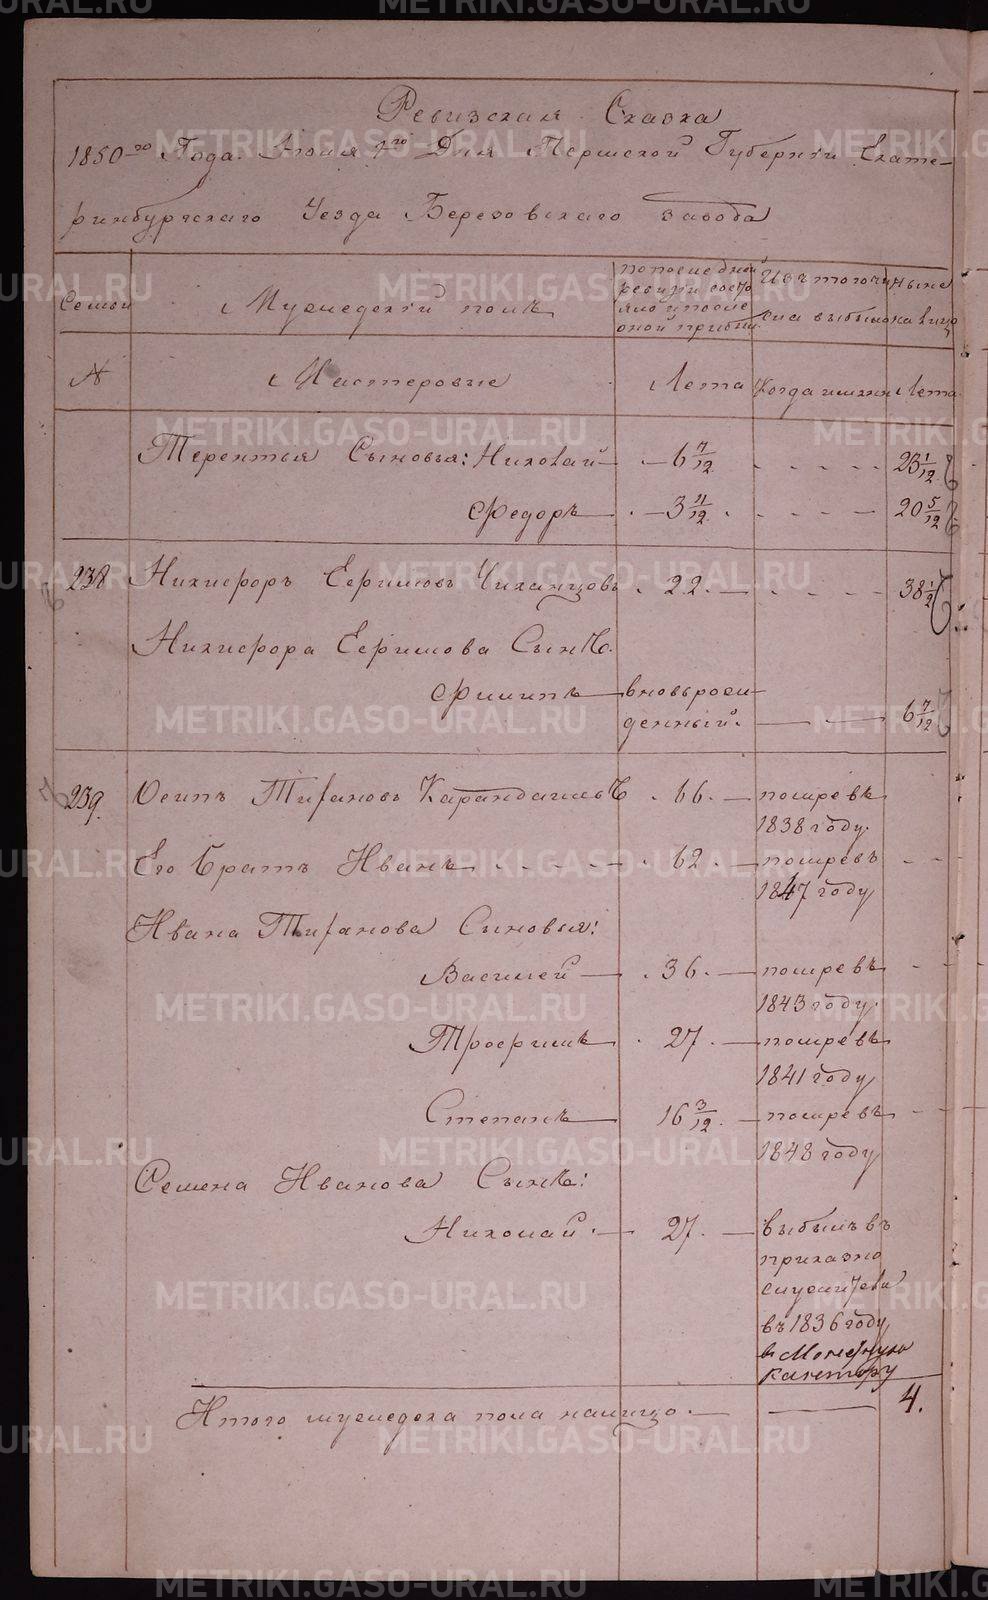 Ревизская Сказка
1850го Года Июля 1го Дня Пермской Губернiи Екате-
ринбургскаго Уезда Березовскаго завода
Семьи
Мужеский полъ
по последней ревизiи состояло и после оной прибыло
Изъ того числа выбыло
Ныне на лицо
N
Мастеровые
Лета
Когда именно
Лета
Терентья Сыновья: Николай 6 7/12 23 1/12
Федоръ 3 11/12 20 5/12
238 Никифоръ Ефимовъ 22 38 1/2
Никифора Ефимова Сынъ
Филипъ вновьрож-
денный 6 7/12
239 Осипъ Карандашевъ 66 помревъ
1838 году
Его братъ Иванъ 62 помревъ
1847 году
Ивана Сыновья:
Василей 36 помревъ
1843 году
Трофимъ 27 помревъ
1841 году
Степанъ 16 3/12 помревъ
1848 году
Семена Иванова Сынъ:
Николай 27 выбылъ въ
приказно
служители
въ 1836 году
в Монетную
кантору
Итого мужеска пола налицо 4.
METRIKI.GASO-URAL.RU